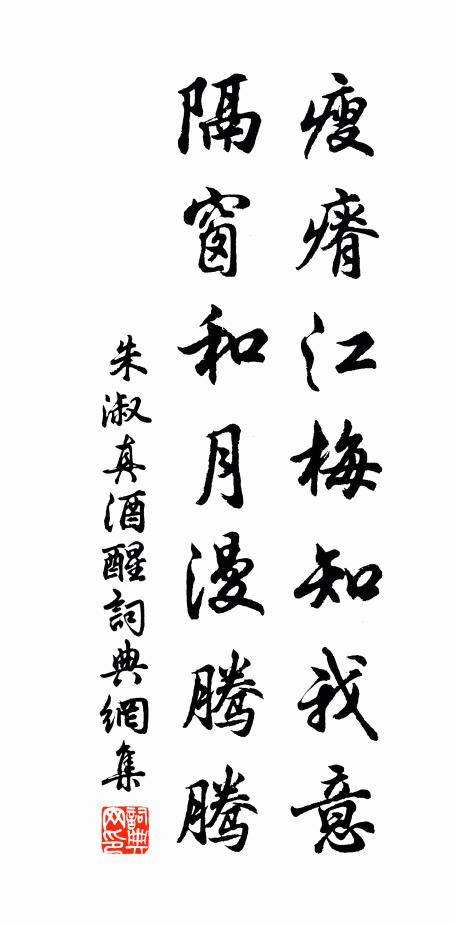 瘦瘠江梅知我意
隔窗和月漫騰騰
朱淑真酒醒詞典網集
詞典網印